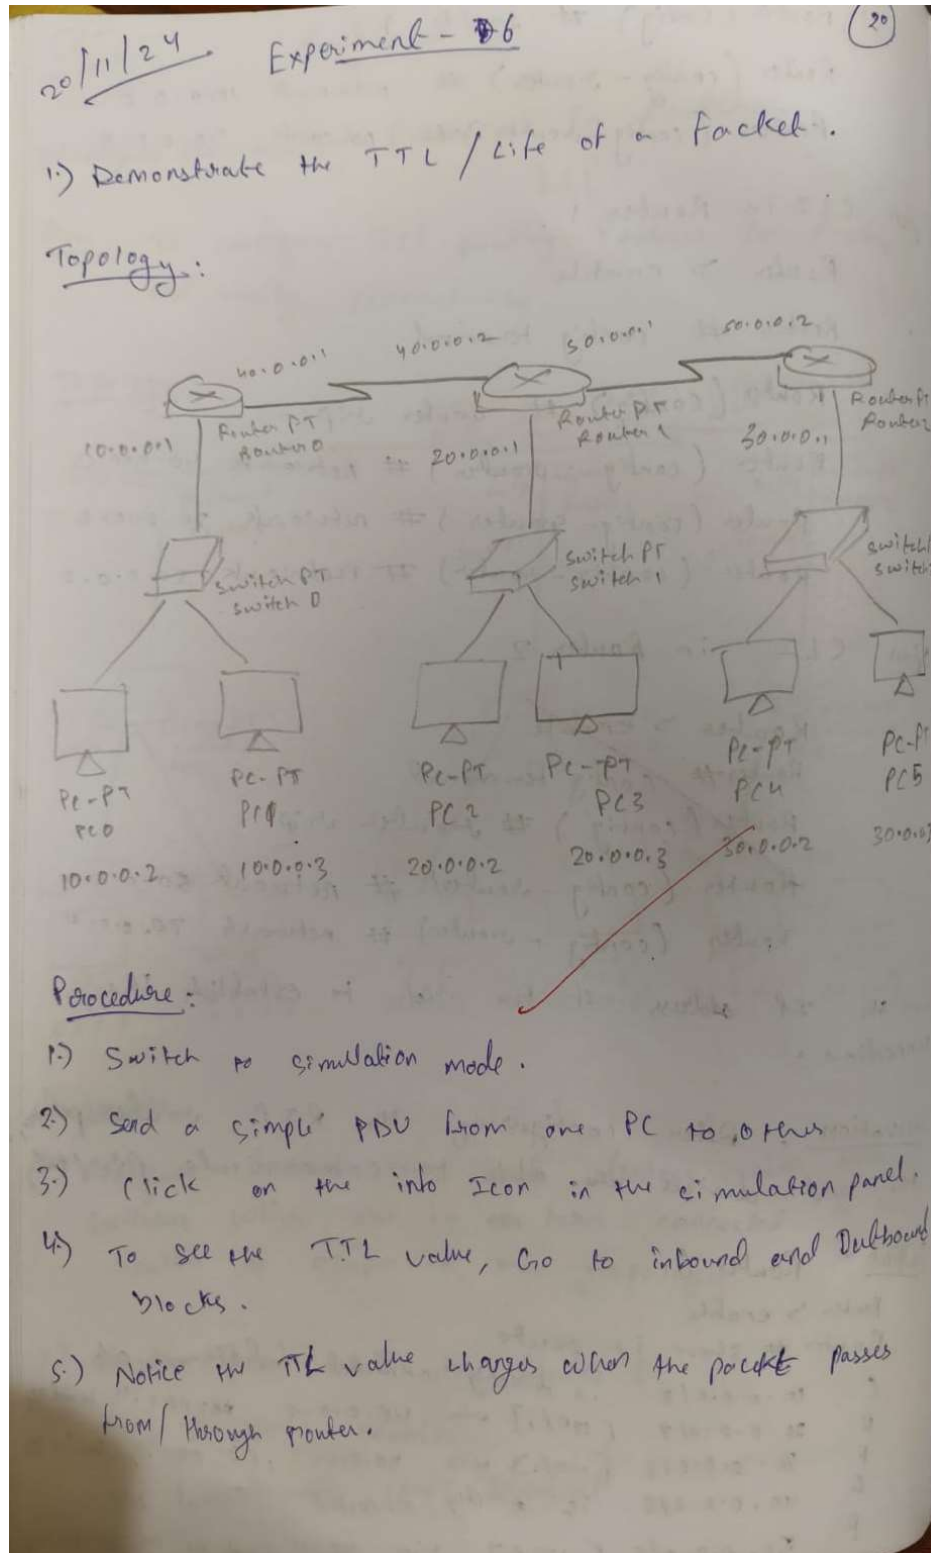 20
20/11/24
Experiment - 6
1.) Demonstrate the TTL / Life of a Packet.
Topology :
40.0.0.1 40.0.0.2 50.0.0.1 50.0.0.2
10.0.0.1 Router PT 20.0.0.1 Router PT 30.0.0.1 Router Pt
Router 0 Router 1 Router2
Switch PT Switch PT Switch
Switch 0 Switch 1 Switch
PC-PT PC-PT PC-PT PC-PT PC-PT PC-PT
PC0 PC1 PC2 PC3 PC4 PC5
10.0.0.2 10.0.0.3 20.0.0.2 20.0.0.3 30.0.0.2 30.0.0.3
Procedure :
1.) Switch to simulation mode.
2.) Send a simple PDU from one PC to other
3.) Click on the info Icon in the simulation panel.
4.) To see the TTL value, Go to inbound and Outbound
blocks.
5.) Notice the TTL value changes when the packet passes
from/ through router.